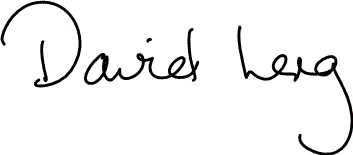 David Lerg